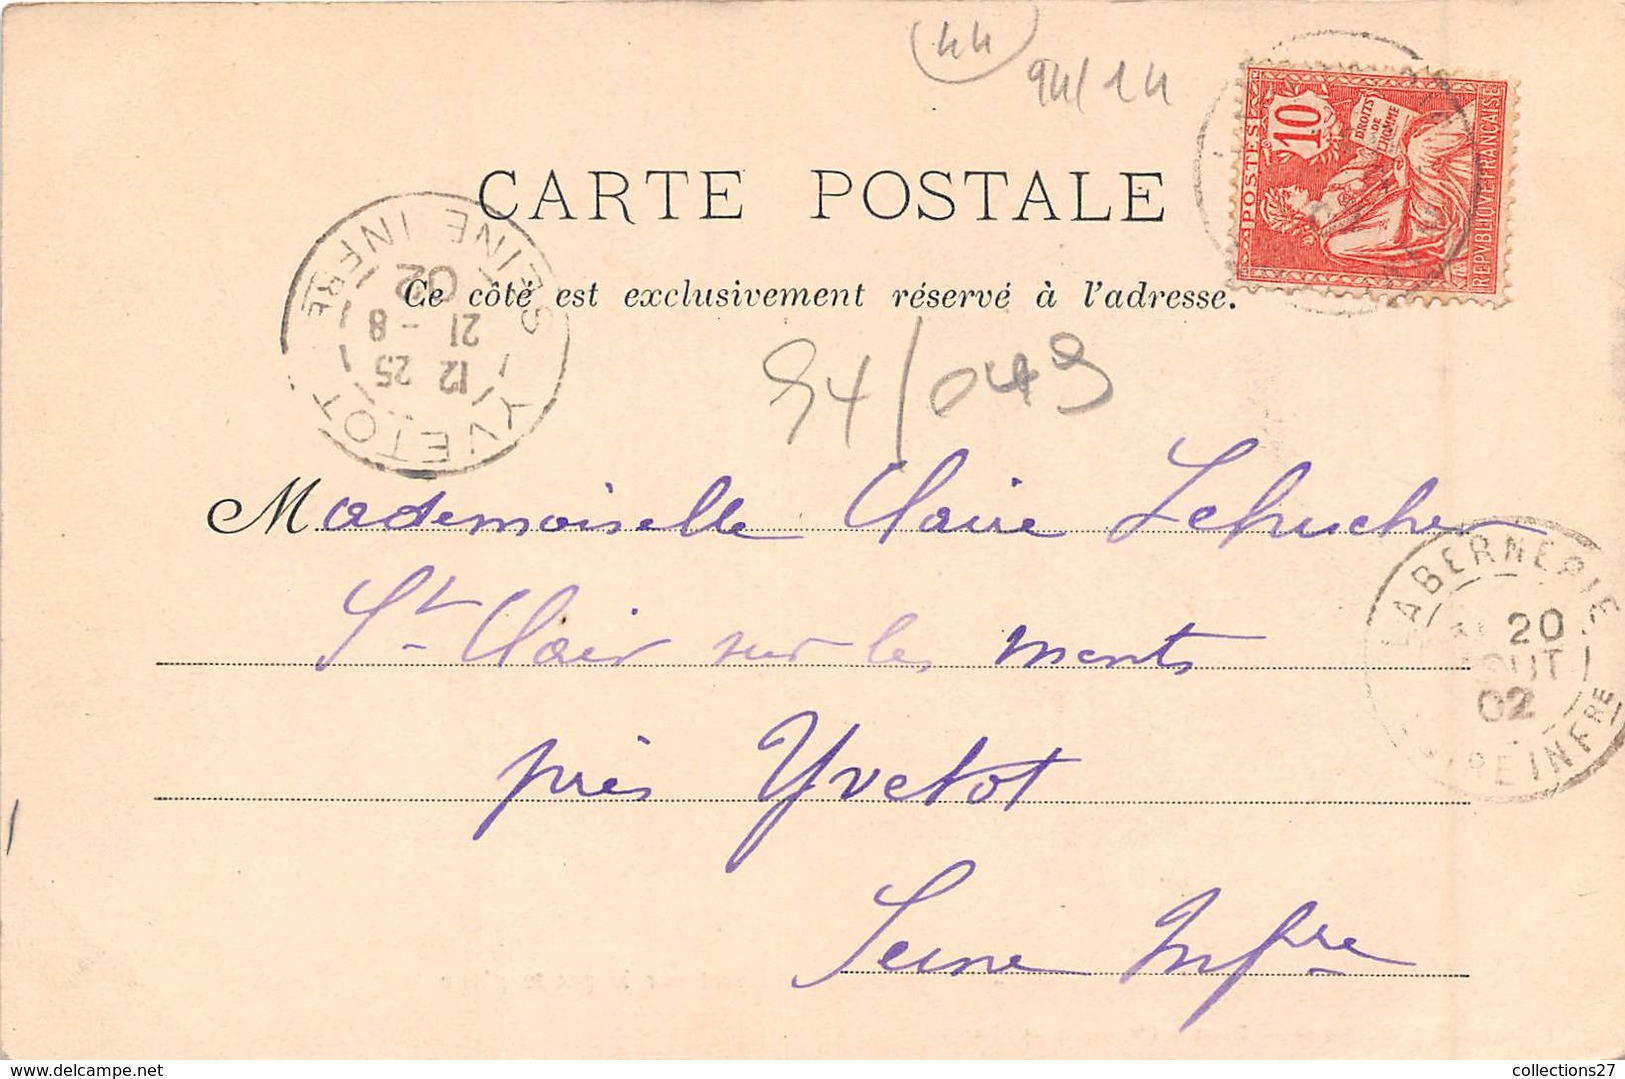 44
94/14
POSTES
10
DROITS
DE
L'HOMME
REPVBLIQVE FRANÇAISE
CARTE POSTALE
Ce côté est exclusivement réservé à l'adresse.
YVETOT
12 25
21 - 8
02
SEINE INFRE
54/049
Mademoiselle Claire
St Clair sur les monts
près Yvetot
Seine Infre
LA BERNERIE
20
AOUT
02
LOIRE INFRE
delcampe.net
collections27